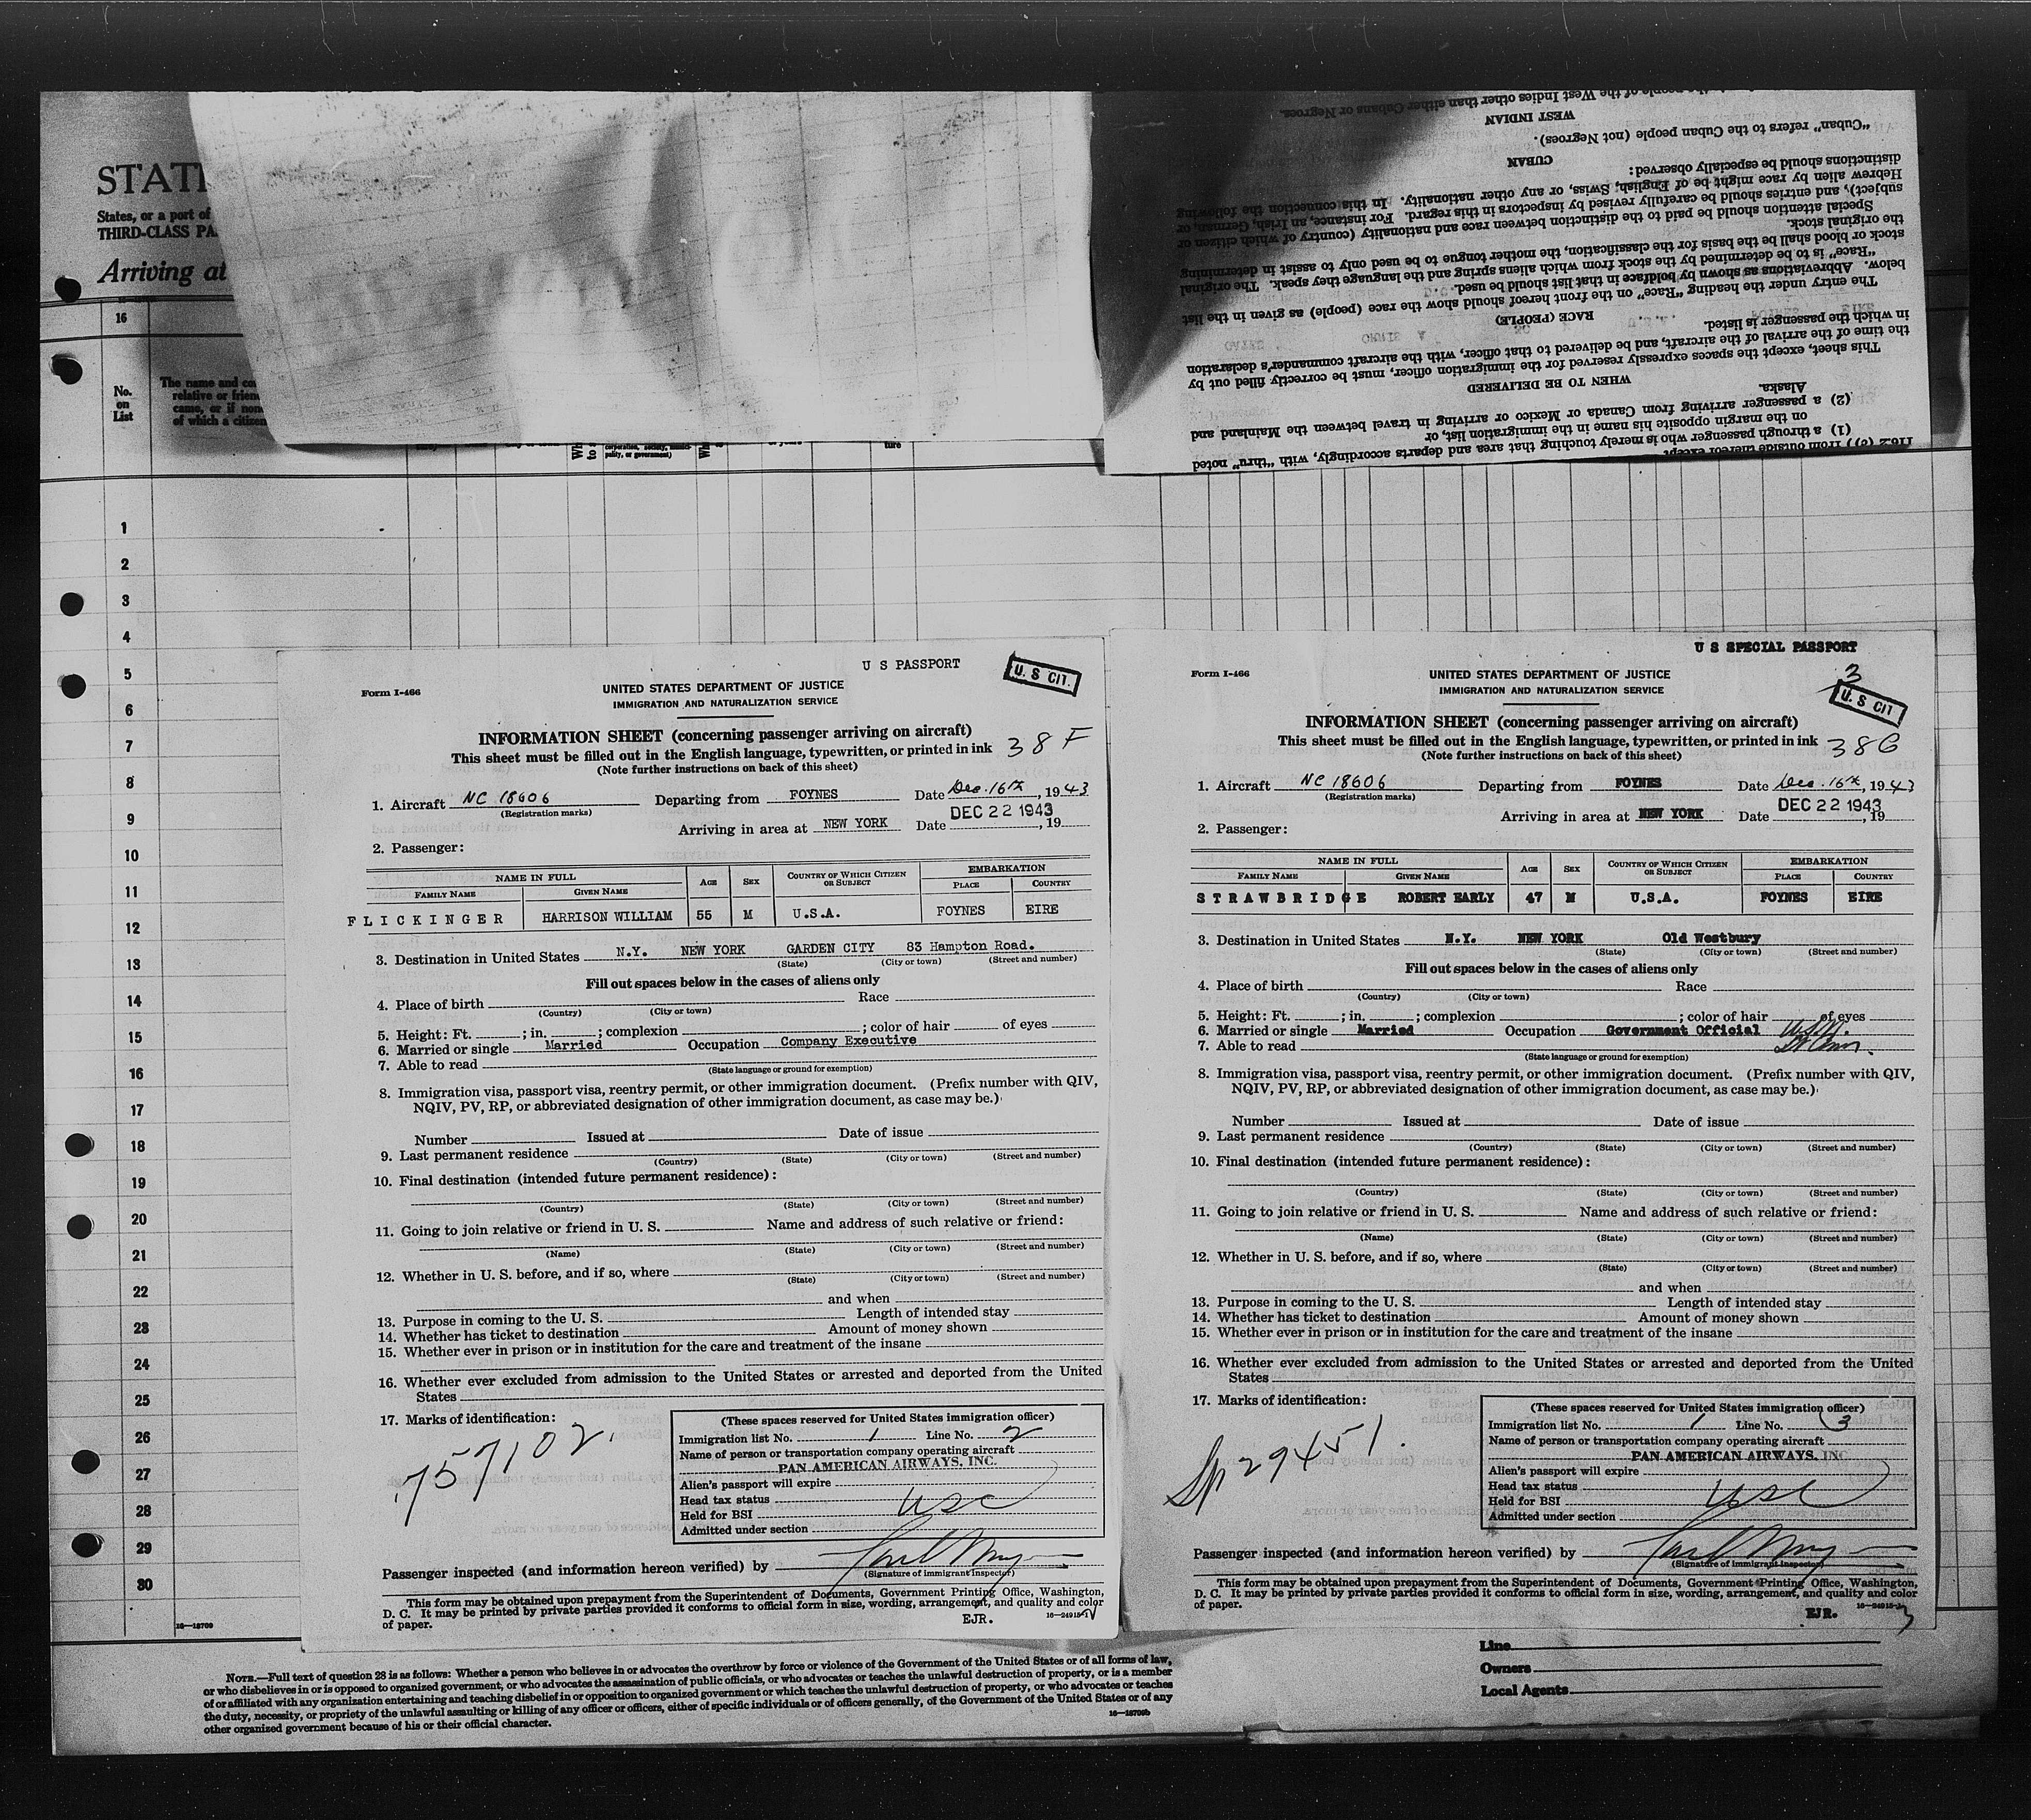 STAT
States, or a port of
THIRD-CLASS PA
Arriving at
16
No.
on
List
The name and
relative or
came, or if
of which a
corporation, society,
pality, or government)
ture
of the West Indies other than either Cubans or Negroes.
WEST INDIAN
"Cuban" refers to the Cuban people (not Negroes).
CUBAN
distinctions should be especially observed:
Hebrew alien by race might be of English, Swiss, or any other nationality. In this connection the following
subject), and entries should be carefully revised by inspectors in this regard. For instance, an Irish, German, or
Special attention should be paid to the distinction between race and nationality (country of which citizen or
the original stock.
stock or blood shall be the basis for the classification, the mother tongue to be used only to assist in determining
"Race" is to be determined by the stock from which aliens spring and the language they speak. The original
below. Abbreviations as shown by boldface in that list should be used.
The entry under the heading "Race" on the front hereof should show the race (people) as given in the list
RACE (PEOPLE)
in which the passenger is listed.
the time of the arrival of the aircraft, and be delivered to that officer, with the aircraft commander's declaration
This sheet, except the spaces expressly reserved for the immigration officer, must be correctly filled out by
WHEN TO BE DELIVERED
Alaska.
(2) a passenger arriving from Canada or Mexico or arriving in travel between the Mainland and
on the margin opposite his name in the immigration list, or
(1) a through passenger who is merely touching that area and departs accordingly, with "thru" noted
116.2 (c)) from outside thereof except
1
2
3
4
5
6
7
8
9
10
11
12
13
14
15
16
17
18
19
20
21
22
23
24
25
26
27
28
29
30
16—18709
U S PASSPORT
U. S CIT.
Form I-466
UNITED STATES DEPARTMENT OF JUSTICE
IMMIGRATION AND NATURALIZATION SERVICE
INFORMATION SHEET (concerning passenger arriving on aircraft)
This sheet must be filled out in the English language, typewritten, or printed in ink 38F
(Note further instructions on back of this sheet)
1. Aircraft NC 18606 Departing from FOYNES Date Dec. 16th, 1943
(Registration marks)
Arriving in area at NEW YORK Date DEC 22 1943, 19
2. Passenger:
NAME IN FULL AGE SEX COUNTRY OF WHICH CITIZEN OR SUBJECT EMBARKATION
FAMILY NAME GIVEN NAME PLACE COUNTRY
FLICKINGER HARRISON WILLIAM 55 M U.S.A. FOYNES EIRE
3. Destination in United States N.Y. NEW YORK GARDEN CITY 83 Hampton Road.
(State) (City or town) (Street and number)
Fill out spaces below in the cases of aliens only
4. Place of birth Race
(Country) (City or town)
5. Height: Ft. ; in. ; complexion ; color of hair of eyes
6. Married or single Married Occupation Company Executive
7. Able to read
(State language or ground for exemption)
8. Immigration visa, passport visa, reentry permit, or other immigration document. (Prefix number with QIV,
NQIV, PV, RP, or abbreviated designation of other immigration document, as case may be.)
Number Issued at Date of issue
9. Last permanent residence
(Country) (State) (City or town) (Street and number)
10. Final destination (intended future permanent residence):
(Country) (State) (City or town) (Street and number)
11. Going to join relative or friend in U. S. Name and address of such relative or friend:
(Name) (State) (City or town) (Street and number)
12. Whether in U. S. before, and if so, where
(State) (City or town) (Street and number)
and when
13. Purpose in coming to the U. S. Length of intended stay
14. Whether has ticket to destination Amount of money shown
15. Whether ever in prison or in institution for the care and treatment of the insane
16. Whether ever excluded from admission to the United States or arrested and deported from the United
States
17. Marks of identification:
757102.
(These spaces reserved for United States immigration officer)
Immigration list No. 1 Line No. 2
Name of person or transportation company operating aircraft
PAN AMERICAN AIRWAYS, INC.
Alien's passport will expire
Head tax status
Held for BSI USC
Admitted under section
Passenger inspected (and information hereon verified) by
(Signature of immigrant inspector)
This form may be obtained upon prepayment from the Superintendent of Documents, Government Printing Office, Washington,
D. C. It may be printed by private parties provided it conforms to official form in size, wording, arrangement, and quality and color
of paper.
EJR. 16—24915-1
U S SPECIAL PASSPORT
3
U. S CIT
Form I-466
UNITED STATES DEPARTMENT OF JUSTICE
IMMIGRATION AND NATURALIZATION SERVICE
INFORMATION SHEET (concerning passenger arriving on aircraft)
This sheet must be filled out in the English language, typewritten, or printed in ink 38G
(Note further instructions on back of this sheet)
1. Aircraft NC 18606 Departing from FOYNES Date Dec. 16th, 1943
(Registration marks)
Arriving in area at NEW YORK Date DEC 22 1943, 19
2. Passenger:
NAME IN FULL AGE SEX COUNTRY OF WHICH CITIZEN OR SUBJECT EMBARKATION
FAMILY NAME GIVEN NAME PLACE COUNTRY
STRAWBRIDGE ROBERT EARLY 47 M U.S.A. FOYNES EIRE
3. Destination in United States N.Y. NEW YORK Old Westbury
(State) (City or town) (Street and number)
Fill out spaces below in the cases of aliens only
4. Place of birth Race
(Country) (City or town)
5. Height: Ft. ; in. ; complexion ; color of hair of eyes
6. Married or single Married Occupation Government Official
7. Able to read
(State language or ground for exemption)
8. Immigration visa, passport visa, reentry permit, or other immigration document. (Prefix number with QIV,
NQIV, PV, RP, or abbreviated designation of other immigration document, as case may be.)
Number Issued at Date of issue
9. Last permanent residence
(Country) (State) (City or town) (Street and number)
10. Final destination (intended future permanent residence):
(Country) (State) (City or town) (Street and number)
11. Going to join relative or friend in U. S. Name and address of such relative or friend:
(Name) (State) (City or town) (Street and number)
12. Whether in U. S. before, and if so, where
(State) (City or town) (Street and number)
and when
13. Purpose in coming to the U. S. Length of intended stay
14. Whether has ticket to destination Amount of money shown
15. Whether ever in prison or in institution for the care and treatment of the insane
16. Whether ever excluded from admission to the United States or arrested and deported from the United
States
17. Marks of identification:
Sp 29451.
(These spaces reserved for United States immigration officer)
Immigration list No. 1 Line No. 3
Name of person or transportation company operating aircraft
PAN AMERICAN AIRWAYS, INC.
Alien's passport will expire
Head tax status
Held for BSI USC
Admitted under section
Passenger inspected (and information hereon verified) by
(Signature of immigrant inspector)
This form may be obtained upon prepayment from the Superintendent of Documents, Government Printing Office, Washington,
D. C. It may be printed by private parties provided it conforms to official form in size, wording, arrangement, and quality and color
of paper.
EJR. 16—24915-1
3
Line
Owners
Local Agents
NOTE.—Full text of question 28 is as follows: Whether a person who believes in or advocates the overthrow by force or violence of the Government of the United States or of all forms of law,
or who disbelieves in or is opposed to organized government, or who advocates the assassination of public officials, or who advocates or teaches the unlawful destruction of property, or is a member
of or affiliated with any organization entertaining and teaching disbelief in or opposition to organized government or which teaches the unlawful destruction of property, or who advocates or teaches
the duty, necessity, or propriety of the unlawful assaulting or killing of any officer or officers, either of specific individuals or of officers generally, of the Government of the United States or of any
other organized government because of his or their official character.
16—18709b